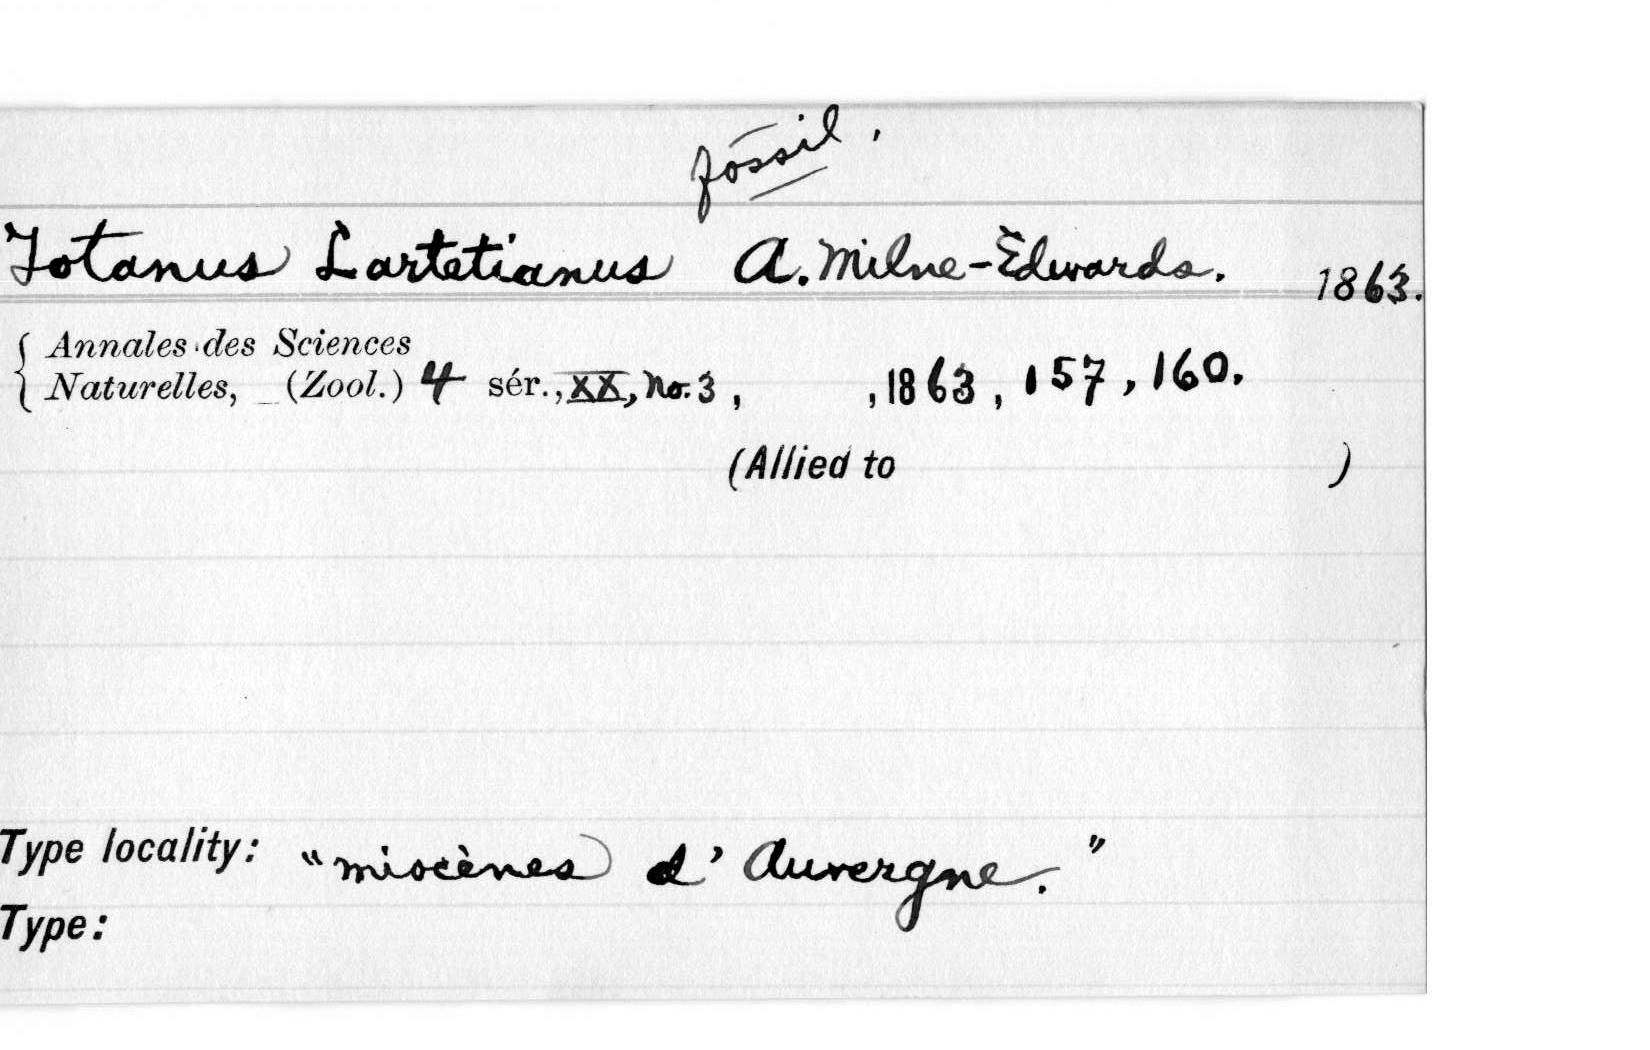 fossil.
Totanus Lartetianus A. Milne-Edwards. 1863.
Annales des Sciences
Naturelles, (Zool.) 4 sér., XX, No. 3, , 1863, 157, 160.
(Allied to )
Type locality: "miocènes d'Auvergne."
Type: